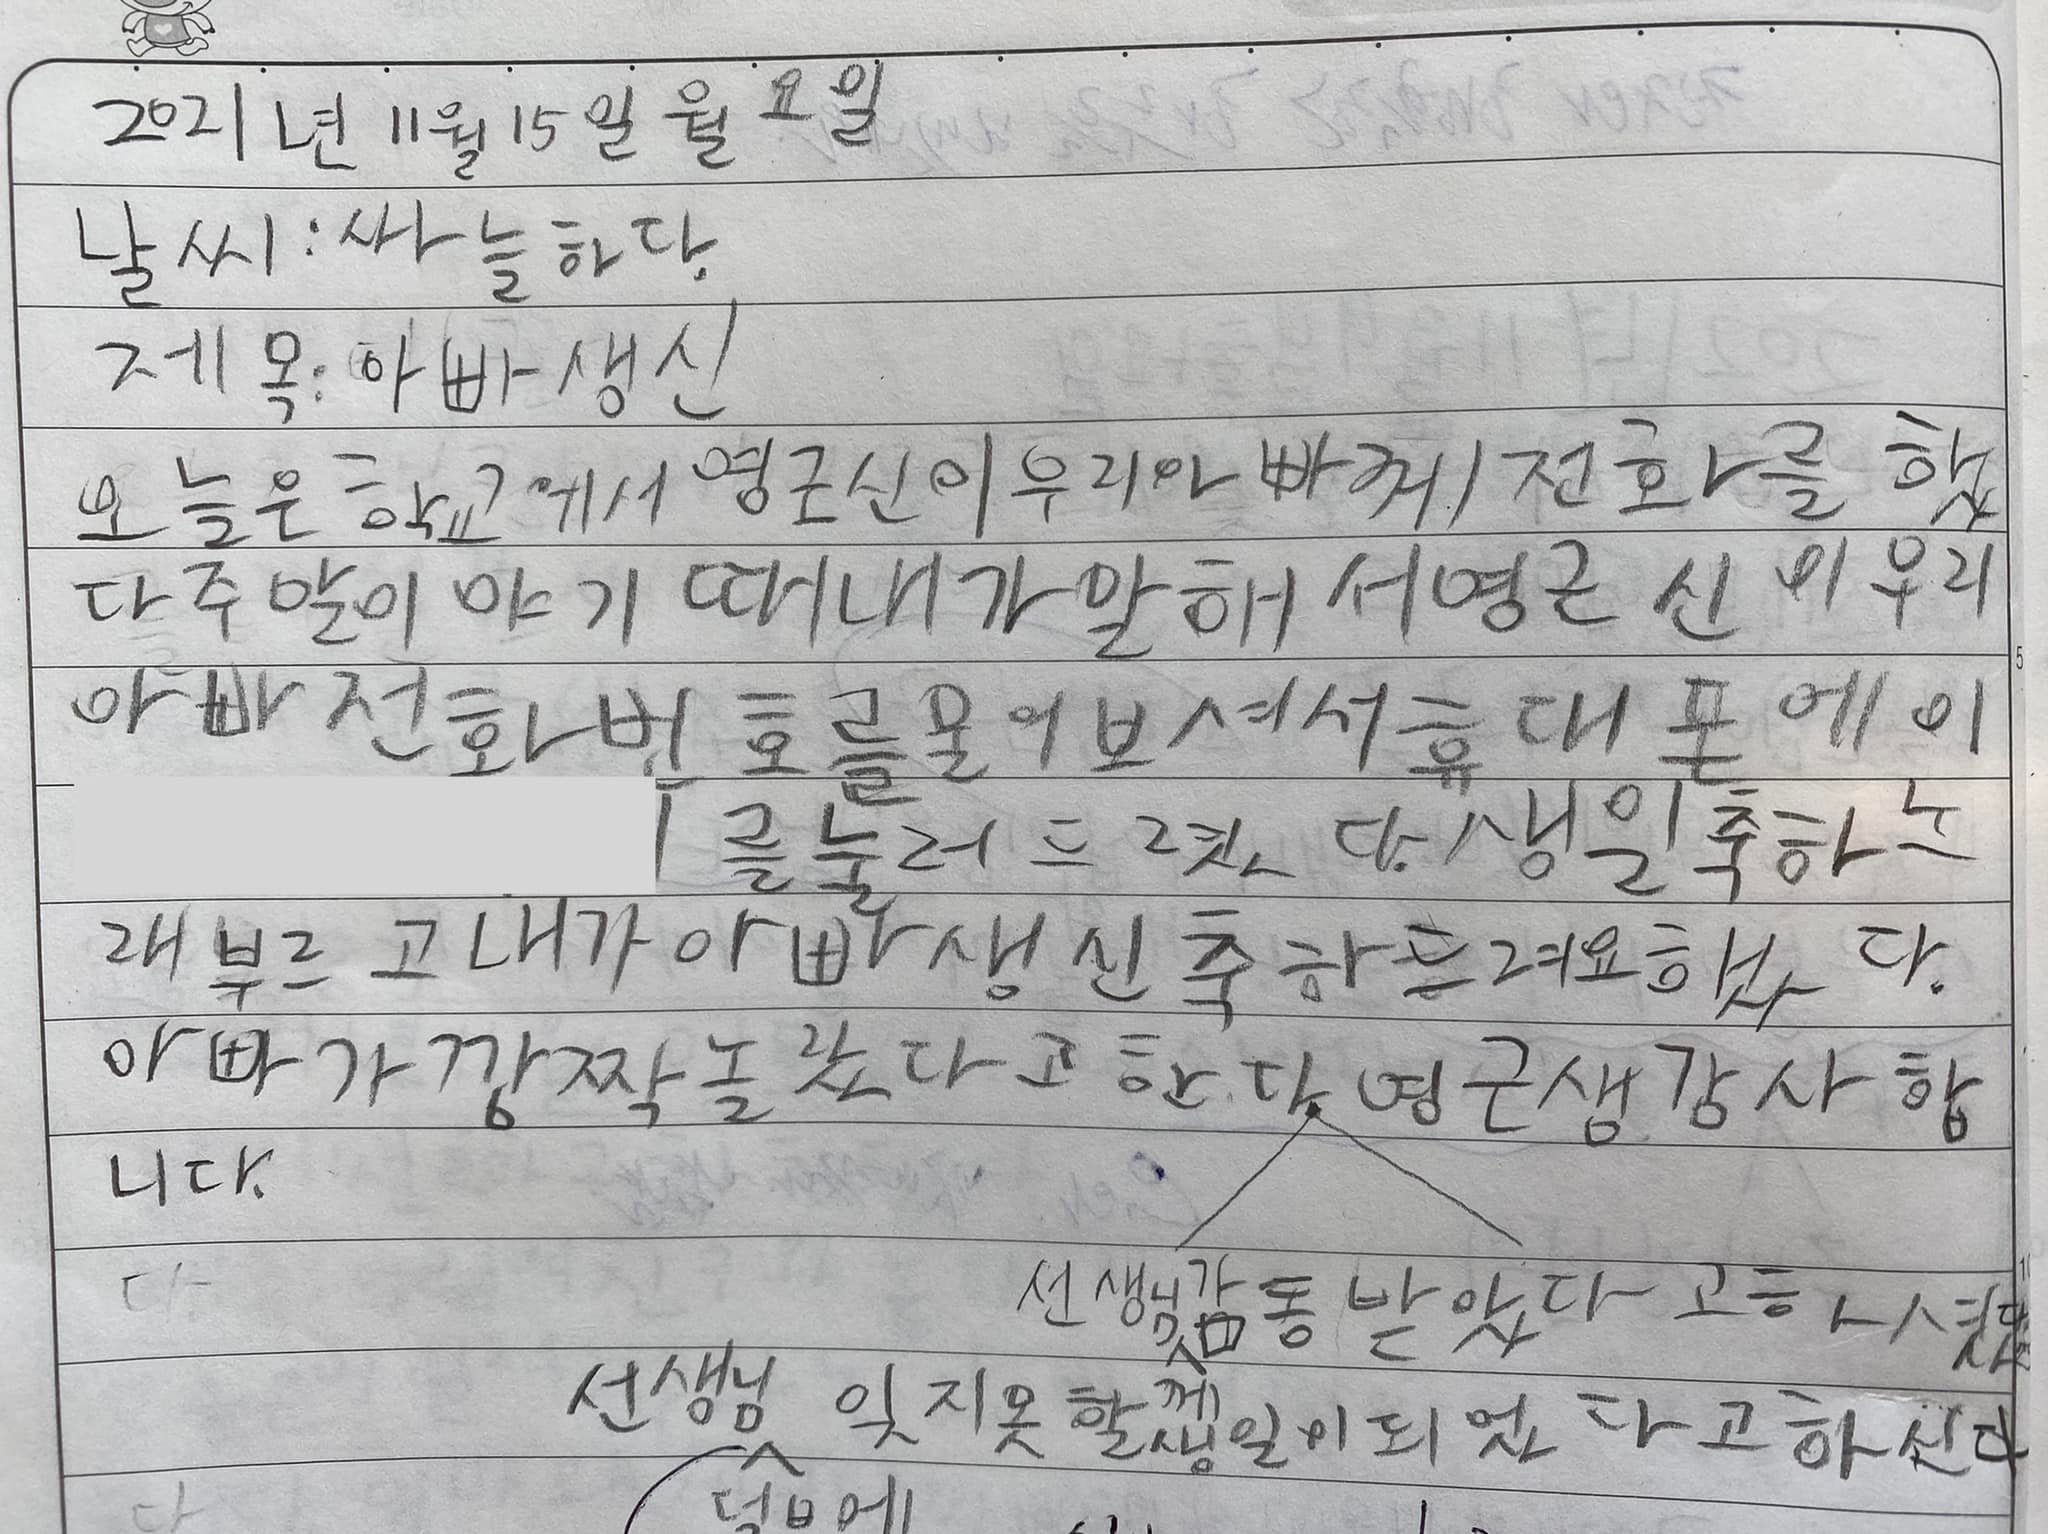 2021년 11월 15일 월요일
날씨:싸늘하다.
제목:아빠생신
오늘은 학교에서 영근신이 우리아빠께 전화를 했
다 주말이야기 때 내가 말해서 영근신이 우리
아빠 전화번호를 물어보셔서 휴대폰에 이
를 눌러드렸다. 생일축하노
래 부르고 내가 아빠 생신축하드려요 했다.
아빠가 깜짝 놀랐다고 한다 영근샘 감사합
니다.
선생님 감동받았다고 하셨다
선생님 잊지못할 생일이 되었다고 하신다
께
덕분에
5